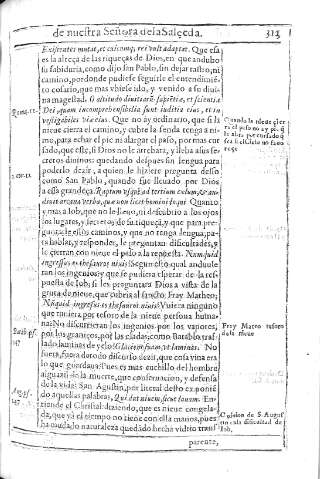 de nuestra Señora de la Salceda. 313
Existentes mutat, et cuicumq; rei volt adaptat. Que esa
es la alteça de las riqueças de Dios, en que anduuo
su sabiduria, como dijo san Pablo, sin dejar rastro, ni
camino, por donde pudiese seguirle el entendimiẽ
to cosario, que mas vbiese ido, y venido a su diui
na magestad. O altitudo diuitiarũ sapiẽtiæ, et scientiæ
Dei, quam incomprehensibilia sunt iuditia eius, et in
vestigabiles viæ eius. Que no ay ordinario, que si la
nieue cierra el camino, y cubre la senda tenga a ni
mo, para echar el pie ni alargar el paso, por mas cur
sado, que este, si Dios no le arrebata, y lleba a sus se-
cretos diuinos: quedando despues sin lengua para
poderlo dezir, a quien le hiziere pregunta desso
como San Pablo, quando fue lleuado por Dios
a essa grandeça. Raptum usq; ad tertium cælum, & au
diuit arcana verba, quæ non licet homini loqui. Quanto
y mas a Iob, que no le lleuo, ni descubrio a los ojos
los lugares, y secretos de su riqueça, y que para pre-
guntarle essos caminos, y que no tenga lengua, pa-
ra hablar, y responder, le preguntan dificultades, y
le cierran con nieue el paso a la respuesta. Numquid
ingressus es thesauros niuis? Segun esto qual andubie
ran los ingenios, y que se pudiera esperar de la res-
puesta de Iob, si les preguntara Dios a vista de la
gruta de nieue, que cubria al santo Fray Matheo;
Nũquid ingressus es thesauros niuis? Vuiera ninguno
que tuuiera por tesoro de la nieue persona huma-
na? No discurrieran los ingenios por los vapores,
por los graniços, por las eladas, como
fuera, fuera de todo discurso dezir, que cosa viua era
lo que guardaua? Pues es mas cuchillo del hombre
de la muerte, que conseruacion, y defensa
de la vida: San Agustin, por literal desto exponiẽ
do aquellas palabras, Qui dat niuem, sicut lanam. En-
tiende el Christal: diziendo, que es nieue congela-
da, que ya el tiempo no tiene con ella manos, pues
ha mudado naturaleza quedado hecha vidrio tras
parente,
Quando la nieue cier
Fray Mateo tesoro
de la nieue
Opinion de S. Agus
en esta dificultad de
Iob.